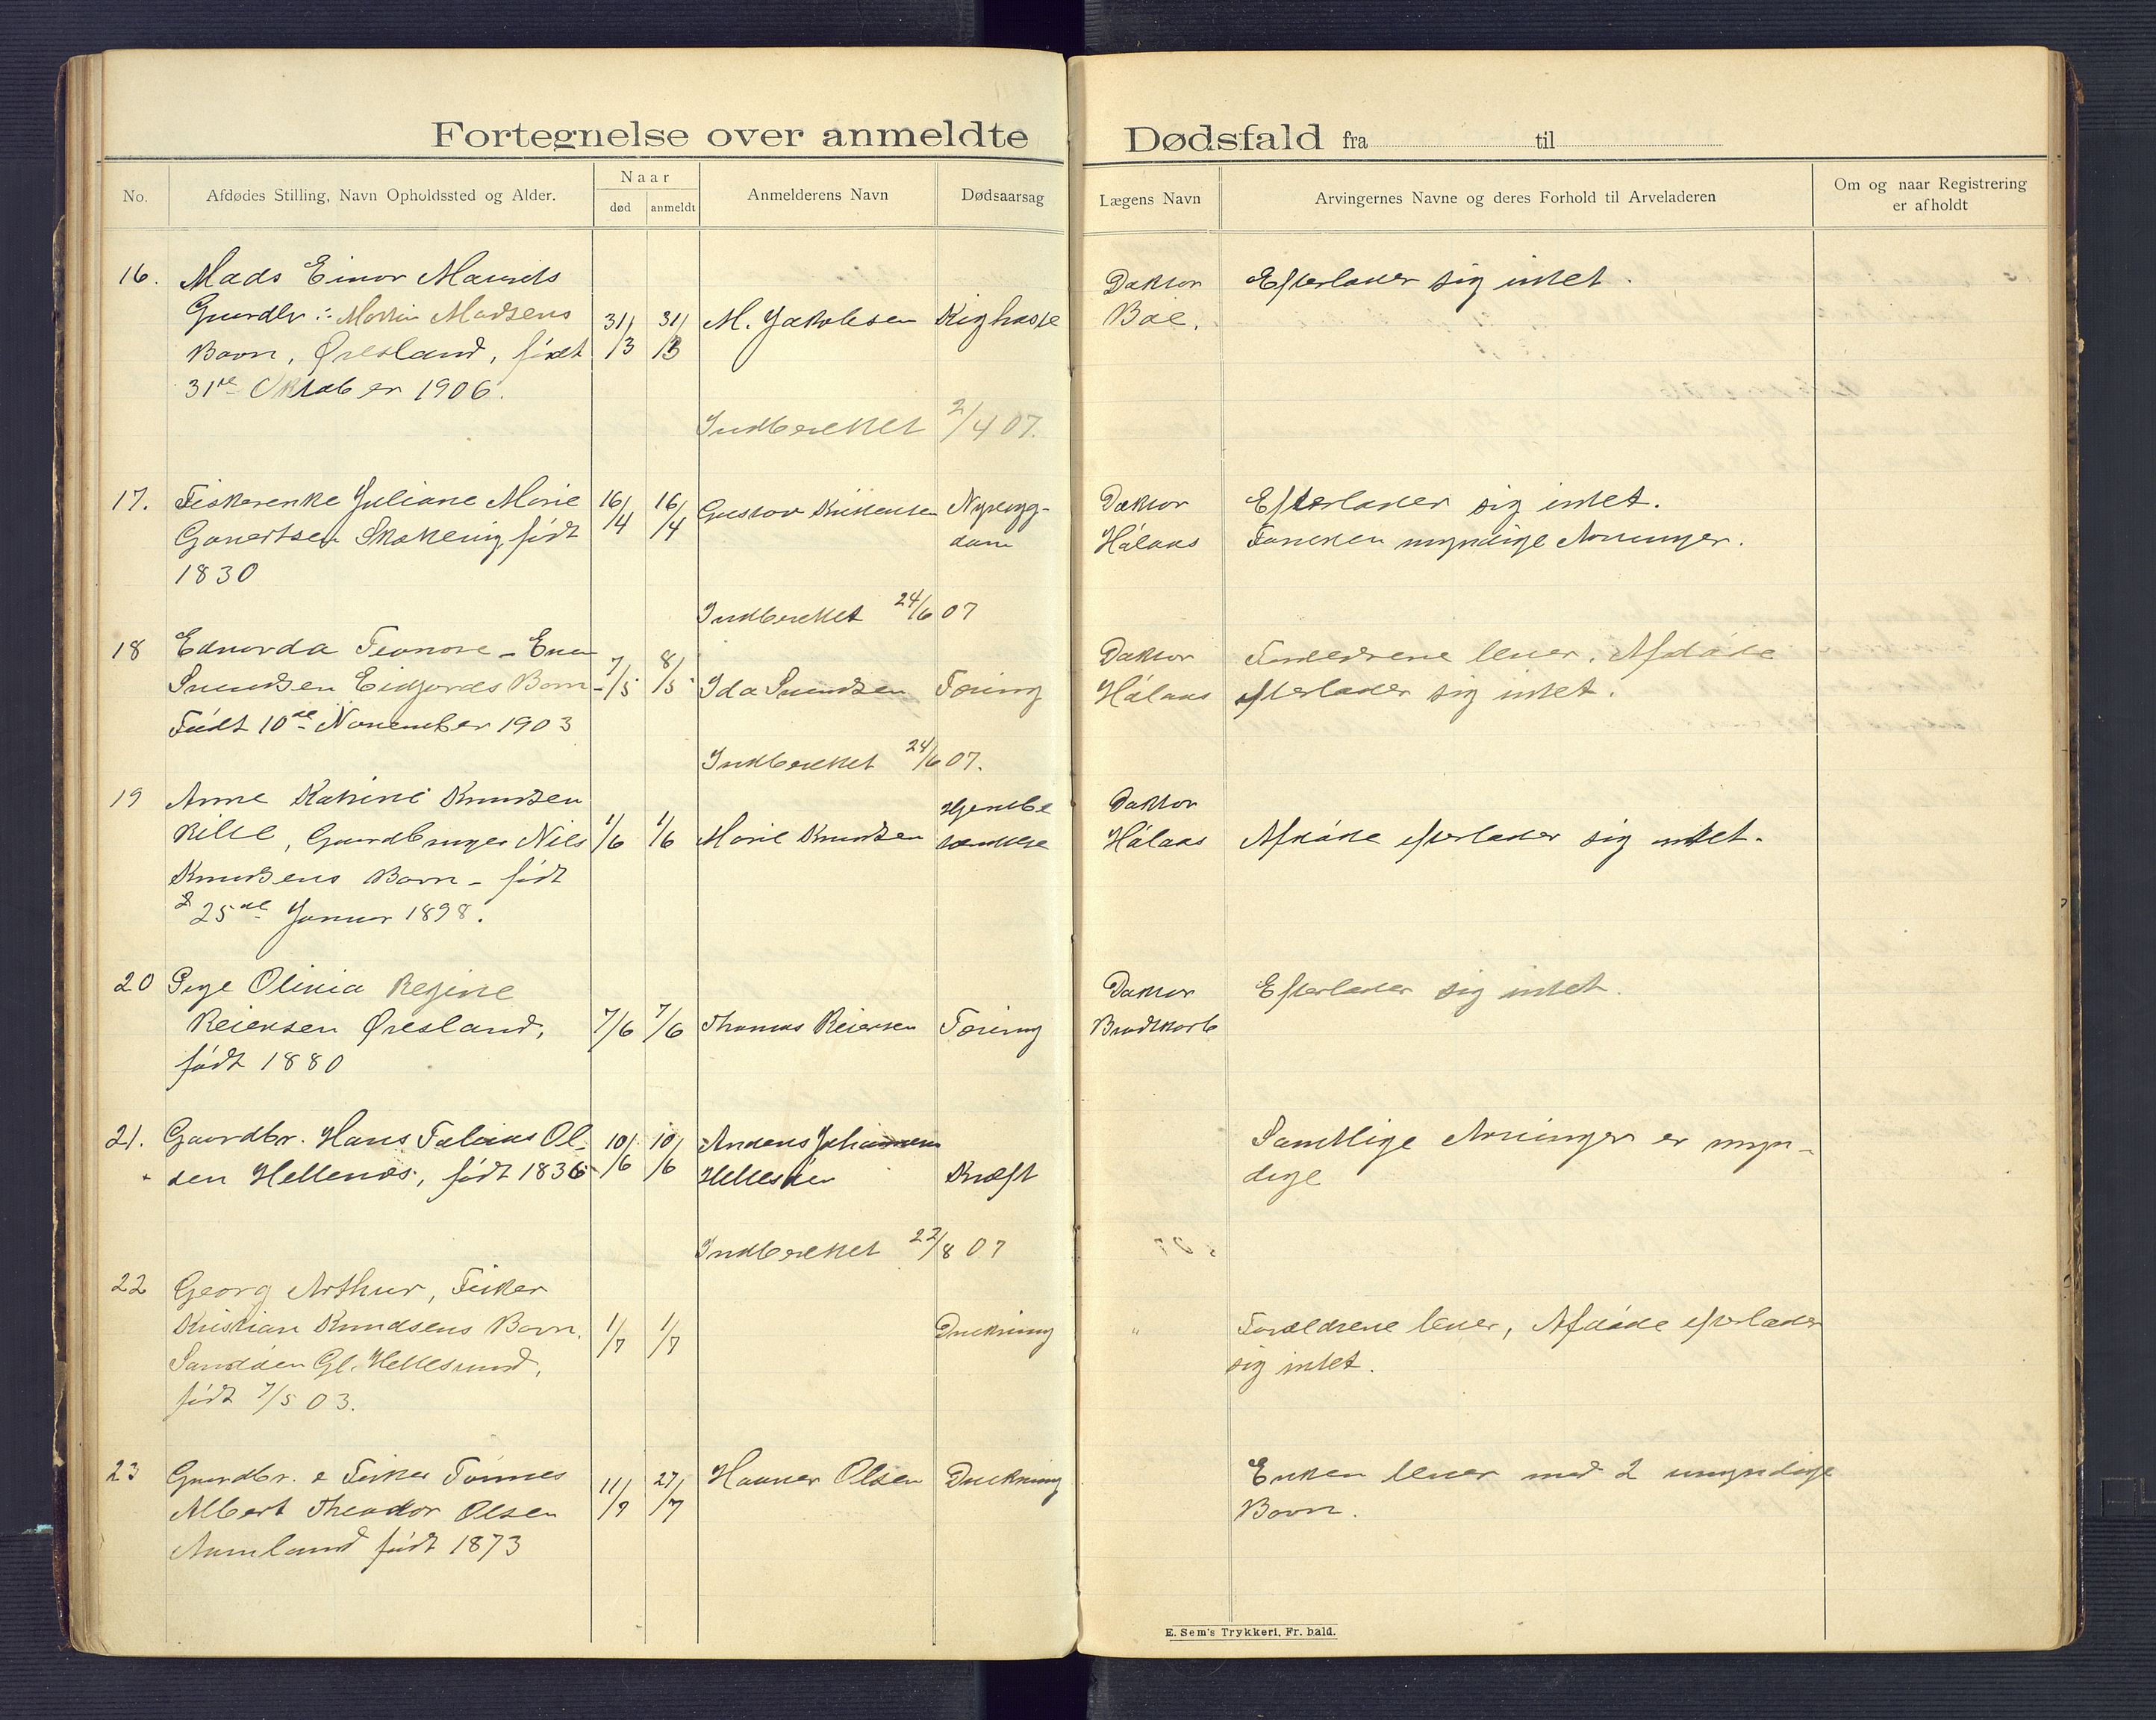 Fortegnelse over anmeldte Dødsfald fra til
No.
Afdødes Stilling, Navn Opholdssted og Alder.
Naar
død
anmeldt
Anmelderens Navn
Dødsaarsag
Lægens Navn
Arvingernes Navne og deres Forhold til Arveladeren
Om og naar Registrering
er afholdt
16. Mads Einar
Gaardbr: Martin Madsens
Barn, Øresland, født
31te Oktober 1906.
31/3 31/3 M. Jakobsen Kighoste
Doktor
Boe.
Efterlader sig intet.
Indberettet 2/4 07.
17. Fiskerenke Juliane Marie
født
1830
16/4 16/4 Gustav Nyresyg-
dom
Doktor
Hålaas
Efterlader sig intet.
myndige Arvinger.
Indberettet 24/6 07
18 Edvarda
Eidjords Barn
Født 10de November 1903
7/5 8/5 Ida Tæring
Doktor
Hålaas
Forældrene lever. Afdøde
efterlader sig intet.
Indberettet 24/6 07.
19 Anne Katrine Knudsen
Gaardbruger Nils
Knudsens Barn - født
25de Januar 1898.
1/6 1/6 Marie Knudsen Hjertebe
tændelse
Doktor
Hålaas
Afdøde efterlader sig intet.
20 Pige Olivia Regine
Reiersen Øresland,
født 1880
7/6 7/6 Thomas Reiersen Tæring
Doktor
Brodtkorb
Efterlader sig intet.
21. Gaardbr. Hans Ol-
sen Hellenes, født 1836
10/6 10/6 Anders Johannesen
Kræft
Samtlige Arvinger er myn-
dige
Indberettet 22/8 07
22 Georg Arthur, Fisker
Kristian Knudsens Barn.
Sandøen Gl. Hellesund,
født 7/5 03.
1/7 1/7 Drukning "
Forældrene lever, Afdøde efterlader
sig intet.
23 Gaardbr. & Fisker Tønnes
Albert Theodor Olsen
Aamland født 1873
11/7 27/7 Olsen Drukning
Enken lever med 2 umyndige
Børn.
E. Sem's Trykkeri, Fr. hald.